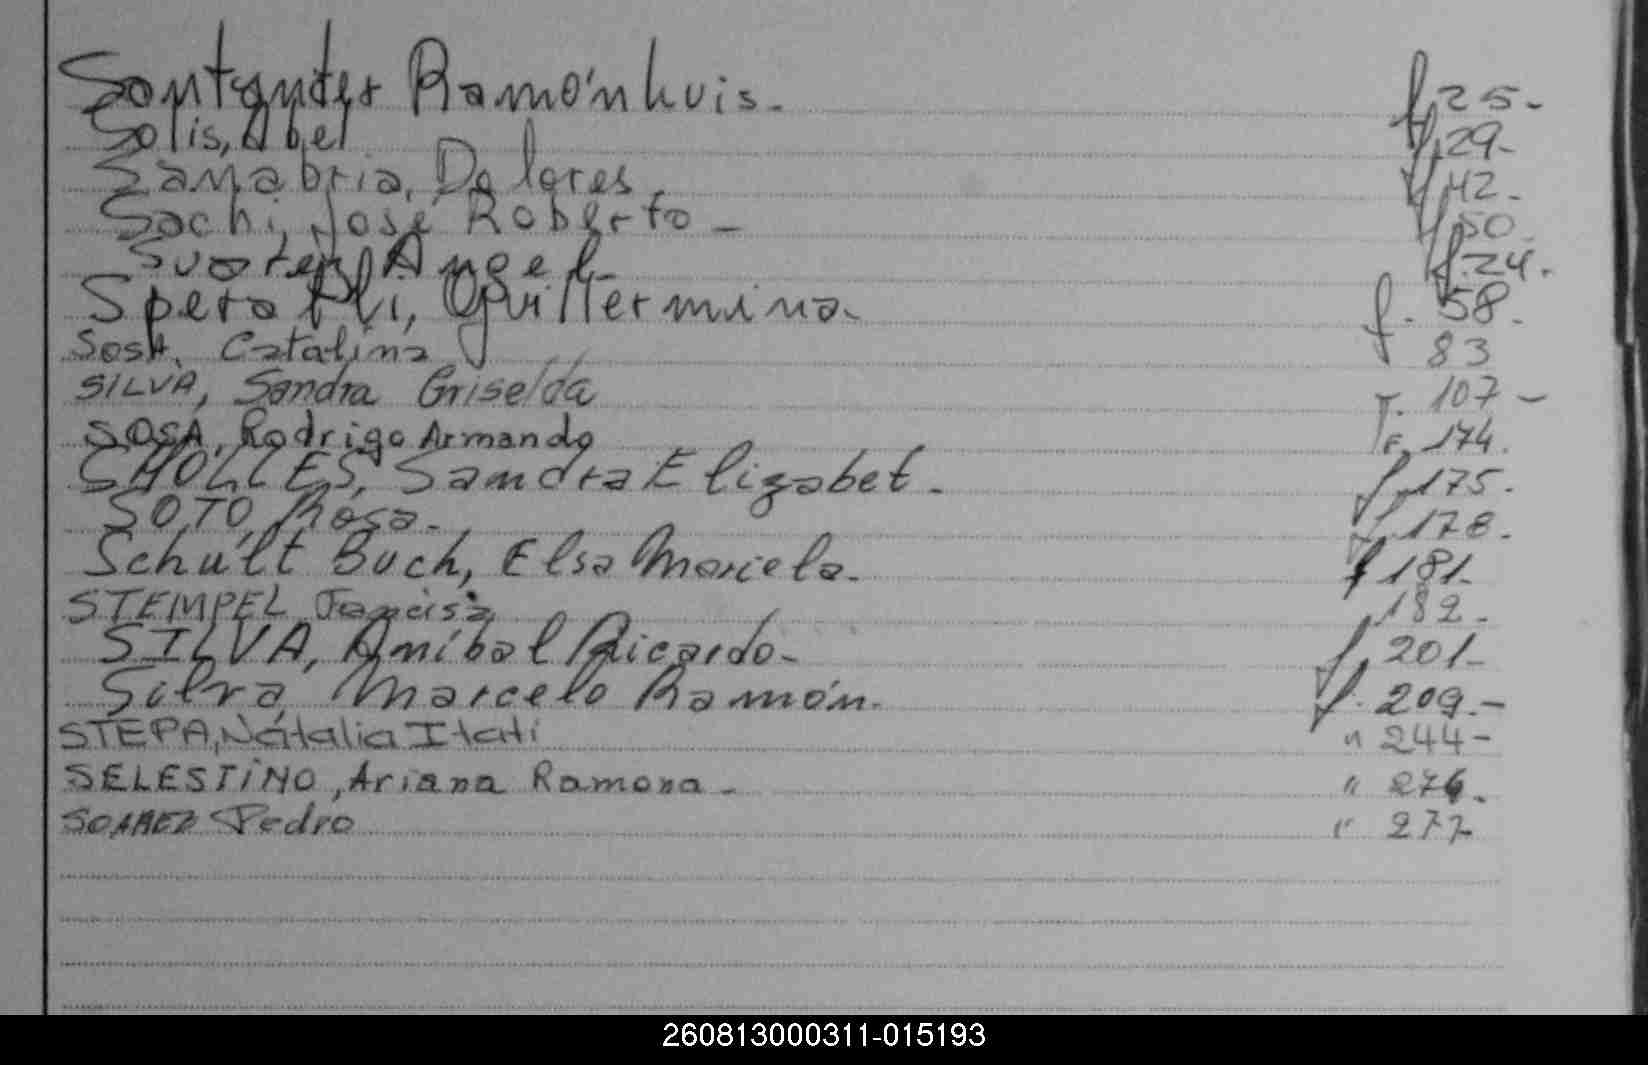 Santander Ramón Luis. f. 25.-
Solis, Abel f. 29-
Sanabria, Dolores. f. 42.-
Sachi, José Roberto - f. 50.
Angel- f. 24.
Speratti, Guillermina. f. 58.
SosA, Catalina f 83
SILVA, Sandra Griselda F. 107 -
SOSA, Rodrigo Armando F. 174.
SHOLLES, Sandra Elizabet. f. 175.
SOTO, Rosa. f. 178.
Schult Buch, Elsa Mariela. f 181-
STEMPEL 182.
SILVA, Aníbal Ricardo- f. 201-
Silva, Marcelo Ramón. f. 209.-
STEPA, Natalia Itatí " 244-
SELESTiNO, Ariana Ramona - " 276.
Pedro " 277-
260813000311-015193